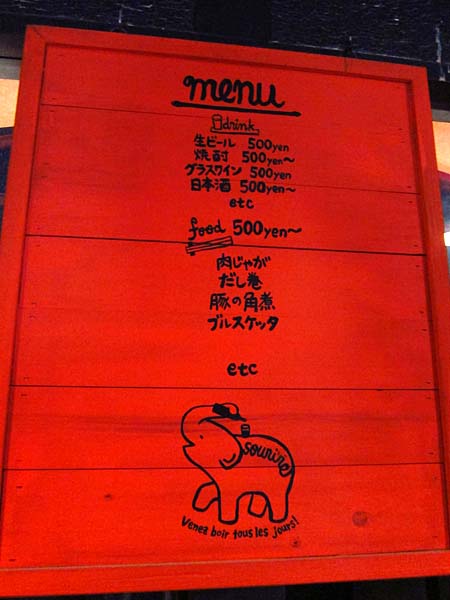 menu
drink
生ビール 500yen
焼酎 500yen～
グラスワイン 500yen
日本酒 500yen～
etc
food 500yen～
肉じゃが
だし巻
豚の角煮
ブルスケッタ
etc
sourire
Venez boir tous les jours!